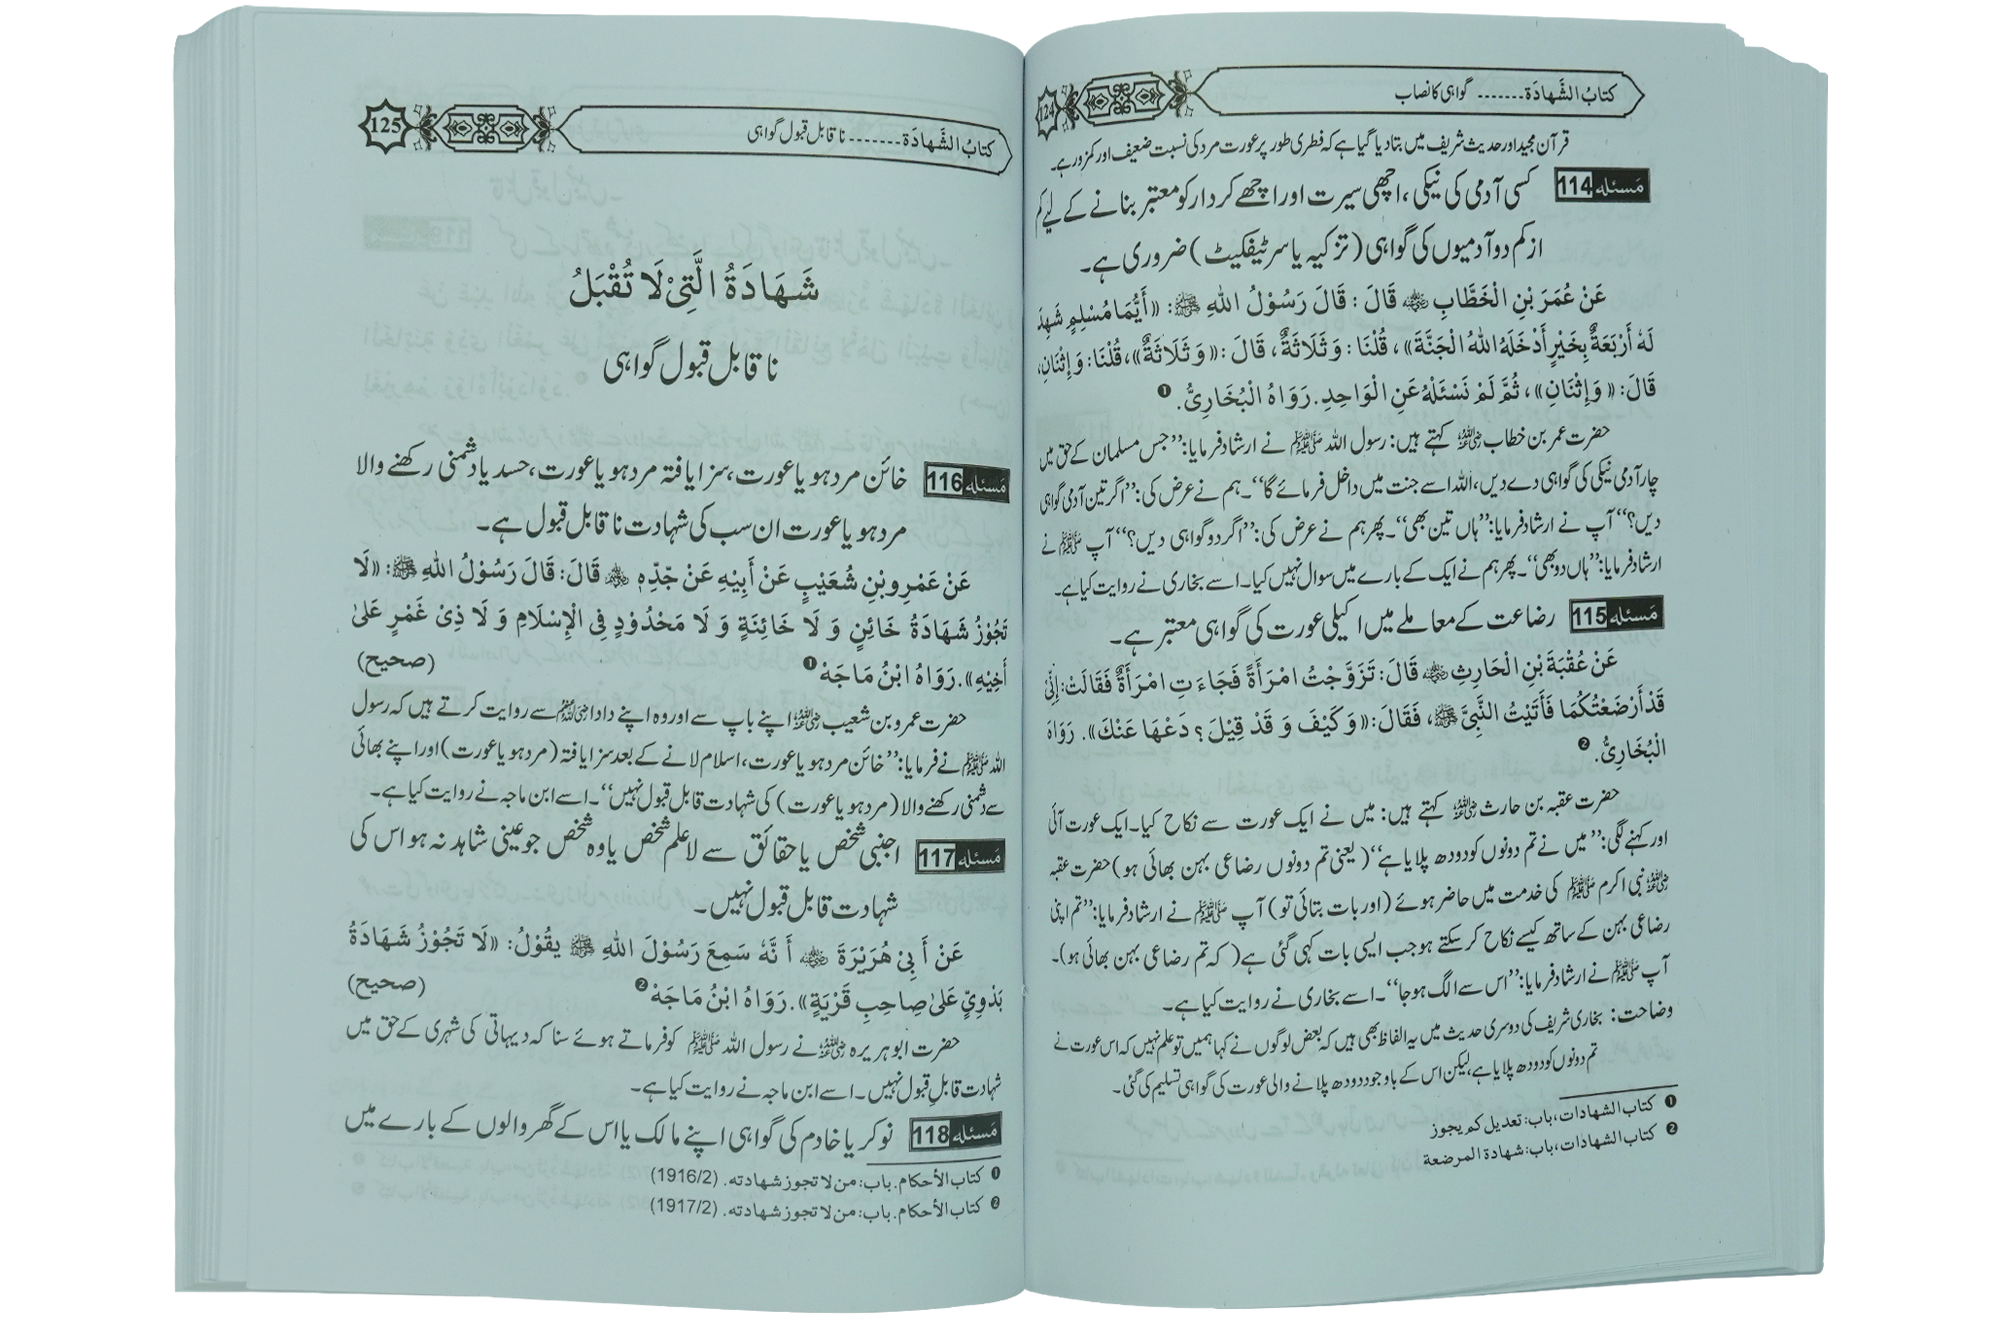 كتابُ الشَّهادَة ....... گواہی کا نصاب
124
قرآن مجید اور حدیث شریف میں بتا دیا گیا ہے کہ فطری طور پر عورت مرد کی نسبت ضعیف اور کمزور ہے۔
مَسئله 114 کسی آدمی کی نیکی، اچھی سیرت اور اچھے کردار کو معتبر بنانے کے لیے کم
از کم دو آدمیوں کی گواہی (تزکیہ یا سرٹیفکیٹ) ضروری ہے۔
عَنْ عُمَرَ بْنِ الْخَطَّابِ ؓ قَالَ: قَالَ رَسُوْلُ اللهِ ﷺ: «أَيُّمَا مُسْلِمٍ شَهِدَ
لَهُ أَرْبَعَةٌ بِخَيْرٍ أَدْخَلَهُ اللهُ الْجَنَّةَ»، قُلْنَا: وَثَلَاثَةٌ، قَالَ: «وَثَلَاثَةٌ»، قُلْنَا: وَإِثْنَانِ،
قَالَ: «وَإِثْنَانِ»، ثُمَّ لَمْ نَسْئَلْهُ عَنِ الْوَاحِدِ. رَوَاهُ الْبُخَارِيُّ. ❶
حضرت عمر بن خطاب ؓ کہتے ہیں: رسول اللہ ﷺ نے ارشاد فرمایا: ’’جس مسلمان کے حق میں
چار آدمی نیکی کی گواہی دے دیں، اللہ اسے جنت میں داخل فرمائے گا‘‘۔ ہم نے عرض کی: ’’اگر تین آدمی گواہی
دیں؟‘‘ آپ نے ارشاد فرمایا: ’’ہاں تین بھی‘‘۔ پھر ہم نے عرض کی: ’’اگر دو گواہی دیں؟‘‘ آپ ﷺ نے
ارشاد فرمایا: ’’ہاں دو بھی‘‘۔ پھر ہم نے ایک کے بارے میں سوال نہیں کیا۔ اسے بخاری نے روایت کیا ہے۔
مَسئله 115 رضاعت کے معاملے میں اکیلی عورت کی گواہی معتبر ہے۔
عَنْ عُقْبَةَ بْنِ الْحَارِثِ ؓ قَالَ: تَزَوَّجْتُ امْرَأَةً فَجَاءَتِ امْرَأَةٌ فَقَالَتْ: إِنِّيْ
قَدْ أَرْضَعْتُكُمَا فَأَتَيْتُ النَّبِيَّ ﷺ، فَقَالَ: «وَكَيْفَ وَ قَدْ قِيْلَ؟ دَعْهَا عَنْكَ». رَوَاهُ
الْبُخَارِيُّ. ❷
حضرت عقبہ بن حارث ؓ کہتے ہیں: میں نے ایک عورت سے نکاح کیا۔ ایک عورت آئی
اور کہنے لگی: ’’میں نے تم دونوں کو دودھ پلایا ہے‘‘ (یعنی تم دونوں رضاعی بہن بھائی ہو) حضرت عقبہ
ؓ نبی اکرم ﷺ کی خدمت میں حاضر ہوئے (اور بات بتائی تو) آپ ﷺ نے ارشاد فرمایا: ’’تم اپنی
رضاعی بہن کے ساتھ کیسے نکاح کر سکتے ہو جب ایسی بات کہی گئی ہے (کہ تم رضاعی بہن بھائی ہو)۔
آپ ﷺ نے ارشاد فرمایا: ’’اس سے الگ ہو جا‘‘۔ اسے بخاری نے روایت کیا ہے۔
وضاحت: بخاری شریف کی دوسری حدیث میں یہ الفاظ بھی ہیں کہ بعض لوگوں نے کہا ہمیں تو علم نہیں کہ اس عورت نے
تم دونوں کو دودھ پلایا ہے، لیکن اس کے باوجود دودھ پلانے والی عورت کی گواہی تسلیم کی گئی۔
❶ كتاب الشهادات، باب: تعديل كم يجوز
❷ كتاب الشهادات، باب: شهادة المرضعة
كتابُ الشَّهادَة ....... نا قابل قبول گواہی
125
شَهَادَةُ الَّتِيْ لَا تُقْبَلُ
نا قابل قبول گواہی
مَسئله 116 خائن مرد ہو یا عورت، سزا یافتہ مرد ہو یا عورت، حسد یا دشمنی رکھنے والا
مرد ہو یا عورت ان سب کی شہادت نا قابل قبول ہے۔
عَنْ عَمْرِو بْنِ شُعَيْبٍ عَنْ أَبِيْهِ عَنْ جَدِّهٖ ؓ قَالَ: قَالَ رَسُوْلُ اللهِ ﷺ: «لَا
تَجُوْزُ شَهَادَةُ خَائِنٍ وَ لَا خَائِنَةٍ وَ لَا مَحْدُوْدٍ فِي الْإِسْلَامِ وَ لَا ذِيْ غَمْرٍ عَلىٰ
أَخِيْهِ». رَوَاهُ ابْنُ مَاجَهْ ❶ (صحيح)
حضرت عمرو بن شعیب ؓ اپنے باپ سے اور وہ اپنے دادا ؓ سے روایت کرتے ہیں کہ رسول
اللہ ﷺ نے فرمایا: ’’خائن مرد ہو یا عورت، اسلام لانے کے بعد سزا یافتہ (مرد ہو یا عورت) اور اپنے بھائی
سے دشمنی رکھنے والا (مرد ہو یا عورت) کی شہادت قابل قبول نہیں‘‘۔ اسے ابن ماجہ نے روایت کیا ہے۔
مَسئله 117 اجنبی شخص یا حقائق سے لاعلم شخص یا وہ شخص جو عینی شاہد نہ ہو اس کی
شہادت قابل قبول نہیں۔
عَنْ أَبِيْ هُرَيْرَةَ ؓ أَنَّهُ سَمِعَ رَسُوْلَ اللهِ ﷺ يَقُوْلُ: «لَا تَجُوْزُ شَهَادَةُ
بَدَوِيٍّ عَلىٰ صَاحِبِ قَرْيَةٍ». رَوَاهُ ابْنُ مَاجَهْ ❷ (صحيح)
حضرت ابو ہریرہ ؓ نے رسول اللہ ﷺ کو فرماتے ہوئے سنا کہ دیہاتی کی شہری کے حق میں
شہادت قابلِ قبول نہیں۔ اسے ابن ماجہ نے روایت کیا ہے۔
مَسئله 118 نوکر یا خادم کی گواہی اپنے مالک یا اس کے گھر والوں کے بارے میں
❶ كتاب الأحكام. باب: من لا تجوز شهادته. (1916/2)
❷ كتاب الأحكام. باب: من لا تجوز شهادته. (1917/2)